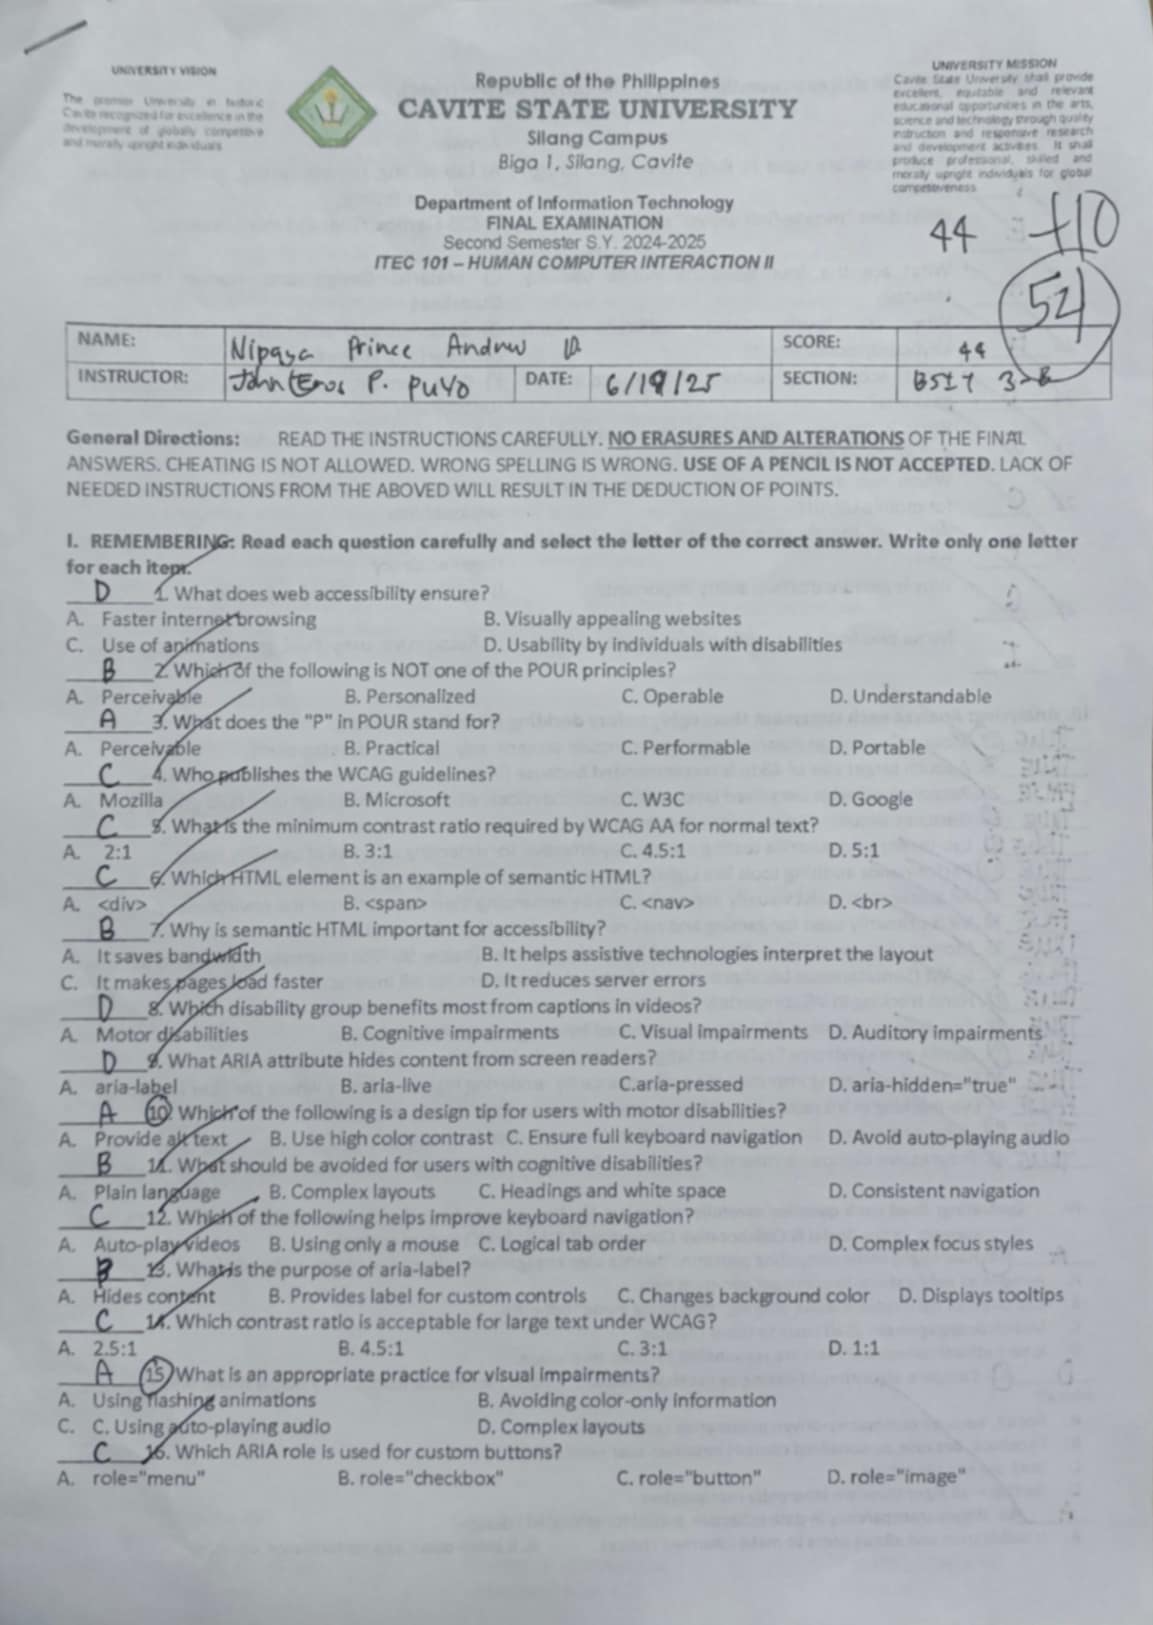 UNIVERSITY VISION
The premier University in historic
Cavite recognized for excellence in the
development of globally competitive
and morally upright individuals
Republic of the Philippines
CAVITE STATE UNIVERSITY
Silang Campus
Biga 1, Silang, Cavite
UNIVERSITY MISSION
Cavite State University shall provide
excellent, equitable and relevant
educational opportunities in the arts,
science and technology through quality
instruction and responsive research
and development activities. It shall
produce professional, skilled and
morally upright individuals for global
competitiveness.
Department of Information Technology
FINAL EXAMINATION
Second Semester S.Y. 2024-2025
ITEC 101 – HUMAN COMPUTER INTERACTION II
44 +10
54
NAME: Nipaya Prince Andrew D. SCORE: 44
INSTRUCTOR: P. PUYO DATE: 6/19/25 SECTION: BSIT 3-B
General Directions: READ THE INSTRUCTIONS CAREFULLY. NO ERASURES AND ALTERATIONS OF THE FINAL
ANSWERS. CHEATING IS NOT ALLOWED. WRONG SPELLING IS WRONG. USE OF A PENCIL IS NOT ACCEPTED. LACK OF
NEEDED INSTRUCTIONS FROM THE ABOVED WILL RESULT IN THE DEDUCTION OF POINTS.
I. REMEMBERING: Read each question carefully and select the letter of the correct answer. Write only one letter
for each item.
D 1. What does web accessibility ensure?
A. Faster internet browsing B. Visually appealing websites
C. Use of animations D. Usability by individuals with disabilities
B 2. Which of the following is NOT one of the POUR principles?
A. Perceivable B. Personalized C. Operable D. Understandable
A 3. What does the "P" in POUR stand for?
A. Perceivable B. Practical C. Performable D. Portable
C 4. Who publishes the WCAG guidelines?
A. Mozilla B. Microsoft C. W3C D. Google
C 5. What is the minimum contrast ratio required by WCAG AA for normal text?
A. 2:1 B. 3:1 C. 4.5:1 D. 5:1
C 6. Which HTML element is an example of semantic HTML?
A. <div> B. <span> C. <nav> D. <br>
B 7. Why is semantic HTML important for accessibility?
A. It saves bandwidth B. It helps assistive technologies interpret the layout
C. It makes pages load faster D. It reduces server errors
D 8. Which disability group benefits most from captions in videos?
A. Motor disabilities B. Cognitive impairments C. Visual impairments D. Auditory impairments
D 9. What ARIA attribute hides content from screen readers?
A. aria-label B. aria-live C.aria-pressed D. aria-hidden="true"
A 10. Which of the following is a design tip for users with motor disabilities?
A. Provide alt text B. Use high color contrast C. Ensure full keyboard navigation D. Avoid auto-playing audio
B 11. What should be avoided for users with cognitive disabilities?
A. Plain language B. Complex layouts C. Headings and white space D. Consistent navigation
C 12. Which of the following helps improve keyboard navigation?
A. Auto-play videos B. Using only a mouse C. Logical tab order D. Complex focus styles
B 13. What is the purpose of aria-label?
A. Hides content B. Provides label for custom controls C. Changes background color D. Displays tooltips
C 14. Which contrast ratio is acceptable for large text under WCAG?
A. 2.5:1 B. 4.5:1 C. 3:1 D. 1:1
A 15 What is an appropriate practice for visual impairments?
A. Using flashing animations B. Avoiding color-only information
C. C. Using auto-playing audio D. Complex layouts
C 16. Which ARIA role is used for custom buttons?
A. role="menu" B. role="checkbox" C. role="button" D. role="image"